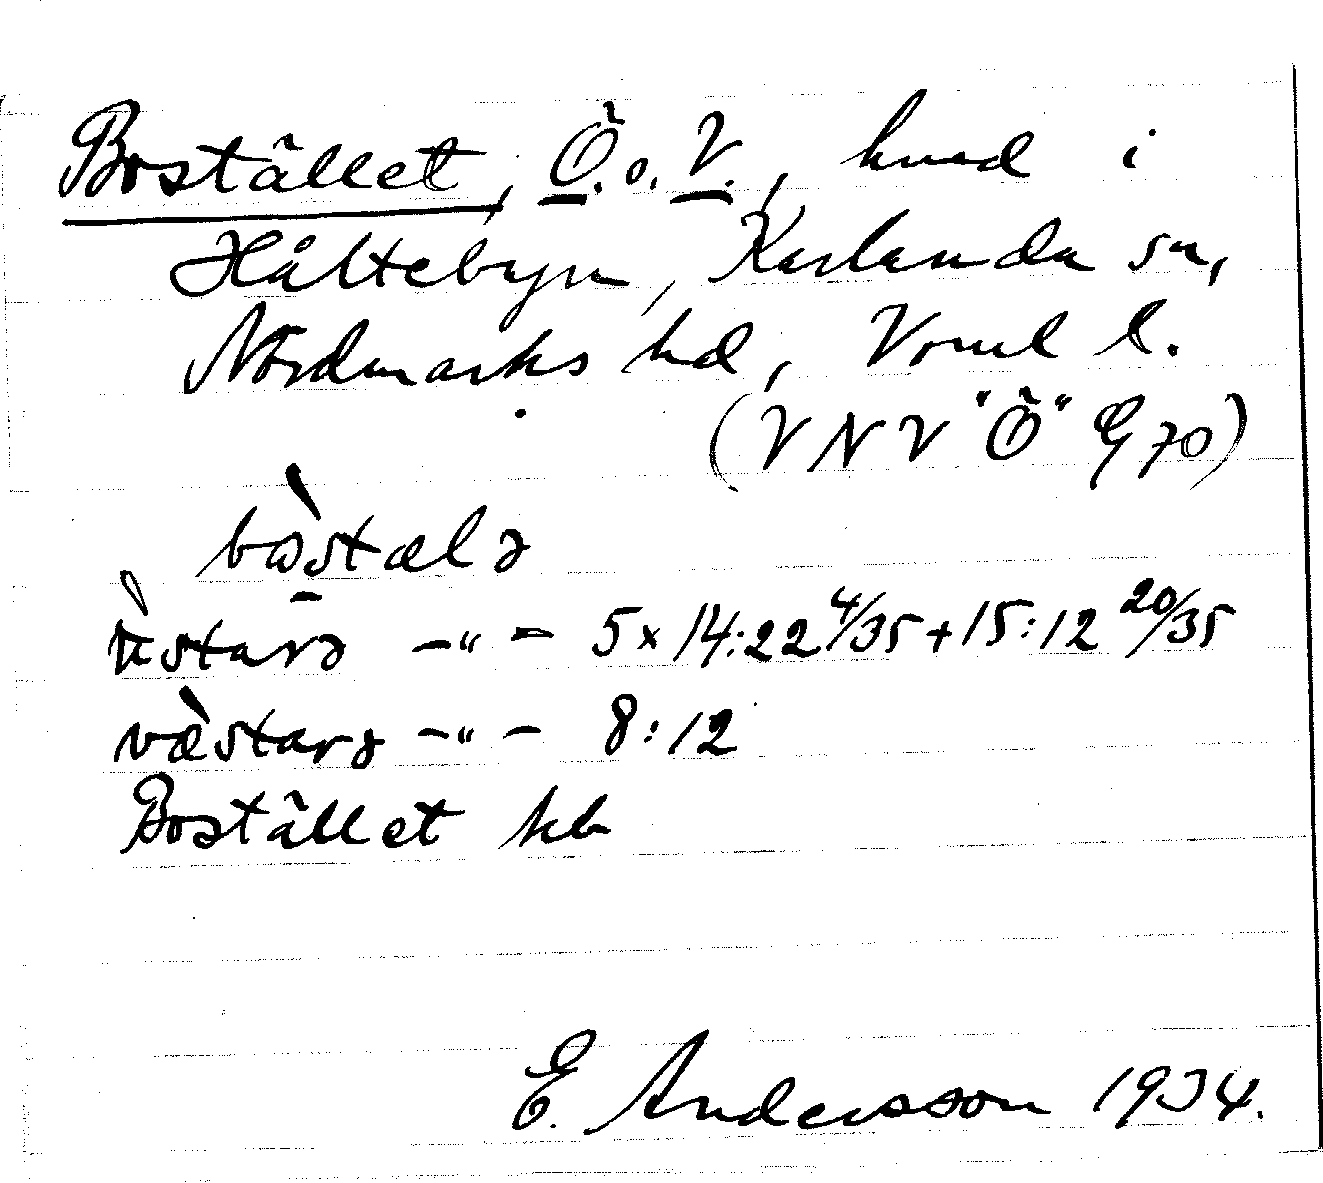 Bostället, Ö. o. V., hmd i
Håltebyn, Karlanda sn,
Nordmarks hd, Vrml l.
(V N V "Ö" G 70)
bòstælə
östarə —"— 5 x 14:22 4/35 + 15:12 20/35
væ̀starə —"— 8:12
Bostället kb
E. Andersson 1934.